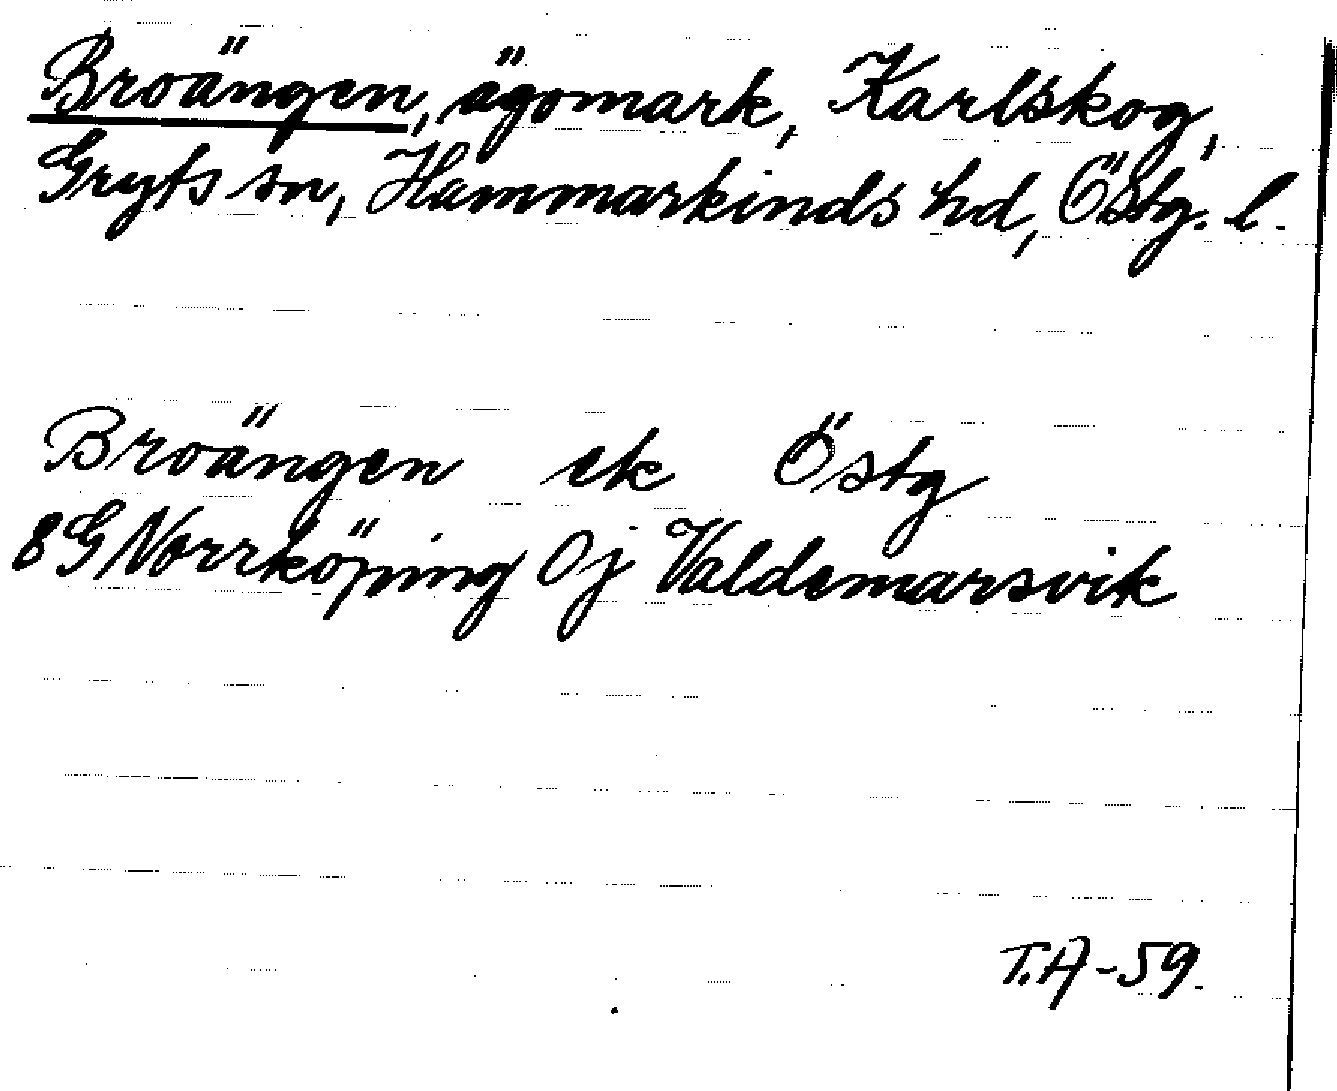 Broängen, ägomark, Karlskog,
Gryts sn, Hammarkinds hd, Östg. l.
Broängen ek Östg
8G Norrköping 0j Valdemarsvik
T.A-59.